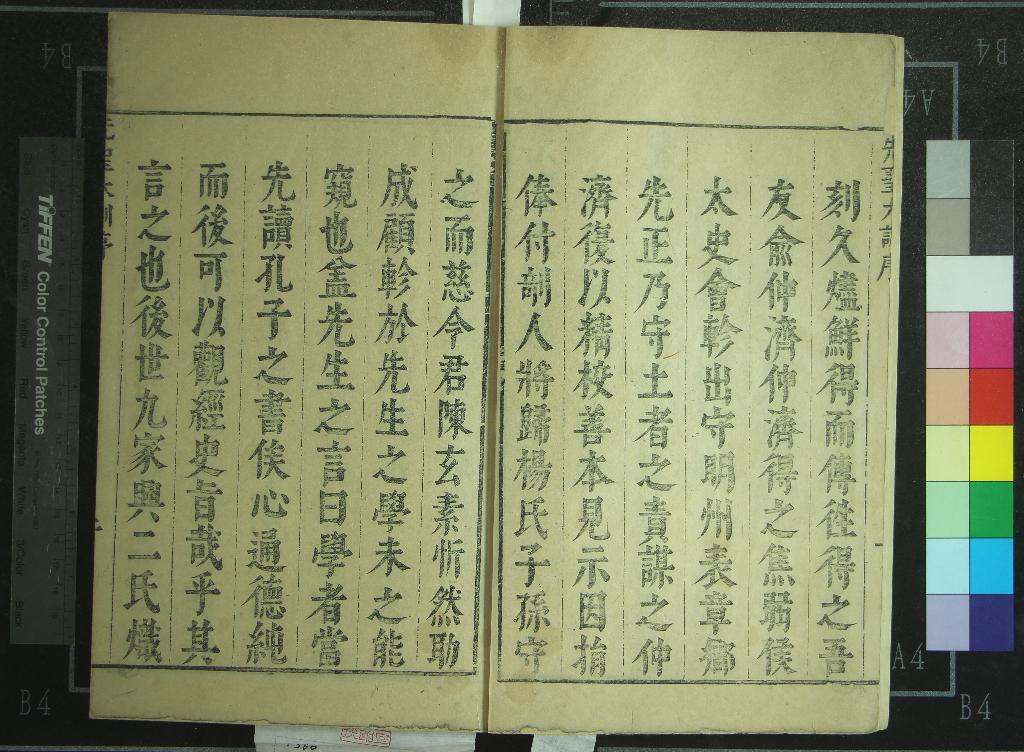 刻久燼鮮得而傳徃得之吾
友俞仲濟仲濟得之焦弱侯
太史會軫出守明州表章鄉
先正乃守土者之責謀之仲
濟復以精校善本見示因捐
俸付剞人將歸楊氏子孫守
之而慈令君陳玄素忻然助
成顧軫於先生之學未之能
窺也盖先生之言曰學者當
先讀孔子之書俟心通德純
而後可以觀經史旨哉乎其
言之也後世九家興二氏熾
TIFFEN Color Control Patches
B4
B4
A4
A4
B4
B4